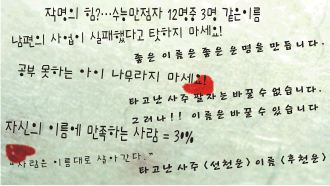 작명의 힘?...수능만점자 12명중 3명 같은이름
남편의 사업이 실패했다고 탓하지 마세요!
좋은 이름은 좋은 운명을 만듭니다.
공부 못하는 아이 나무라지 마세요!
타고난 사주 팔자는 바꿀 수 없습니다.
그러나!! 이름은 바꿀 수 있습니다
자신의 이름에 만족하는 사람 = 30%
"사람은 이름대로 살아간다."
타고난 사주 <선천운> 이름 <후천운>